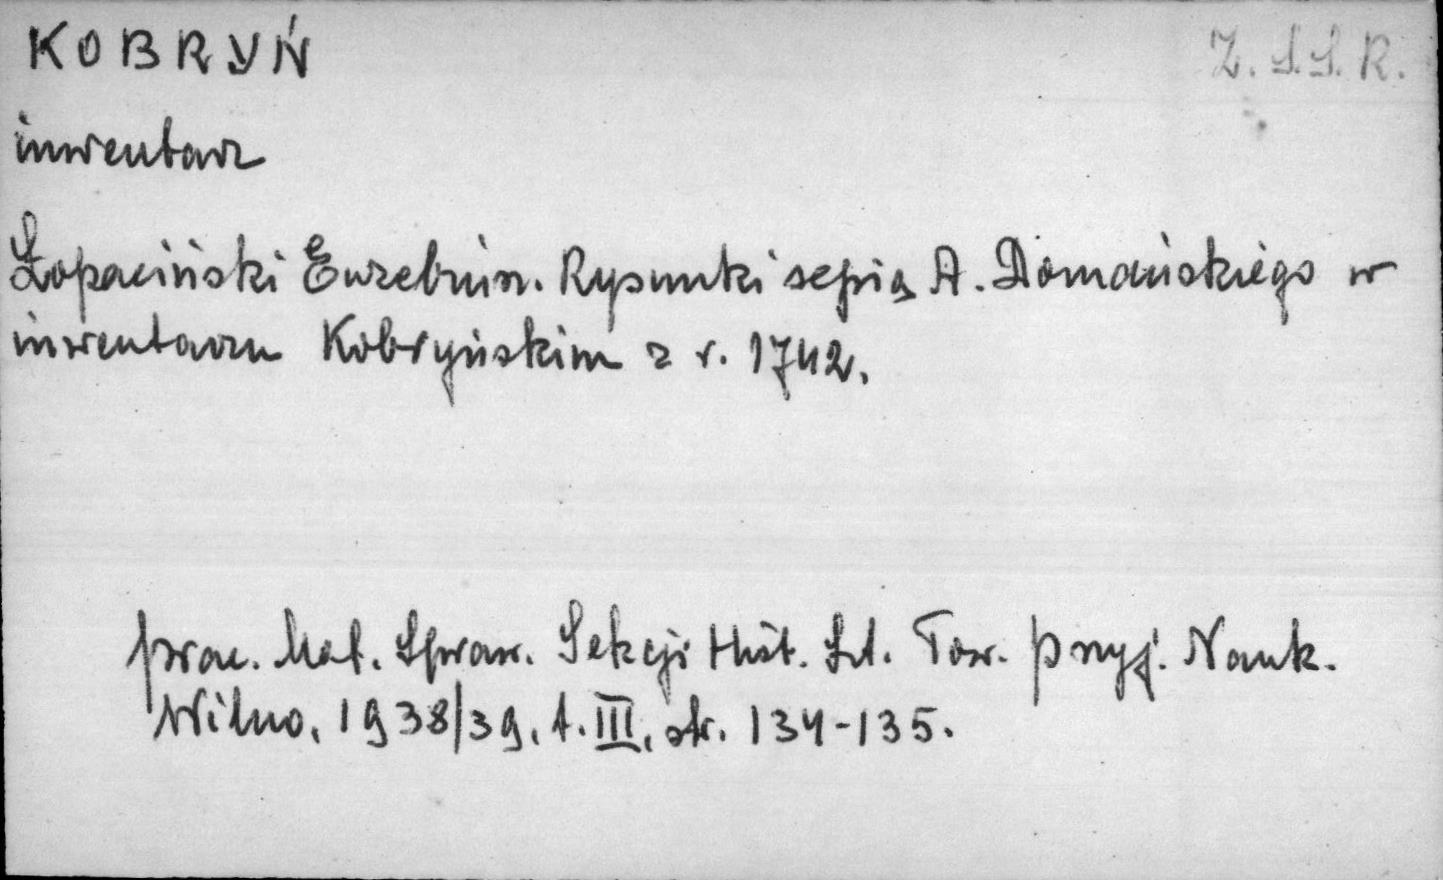 KOBRYŃ
Z.S.S.R.
inwentarz
Łopaciński Euzebiusz. Rysunki sepią A. Domańskiego w
inwentarzu Kobryńskim z r. 1742.
Prac. Mat. Spraw. Sekcji Hist. Szt. Tow. Przyj. Nauk.
Wilno, 1938/39, t. III, str. 134-135.